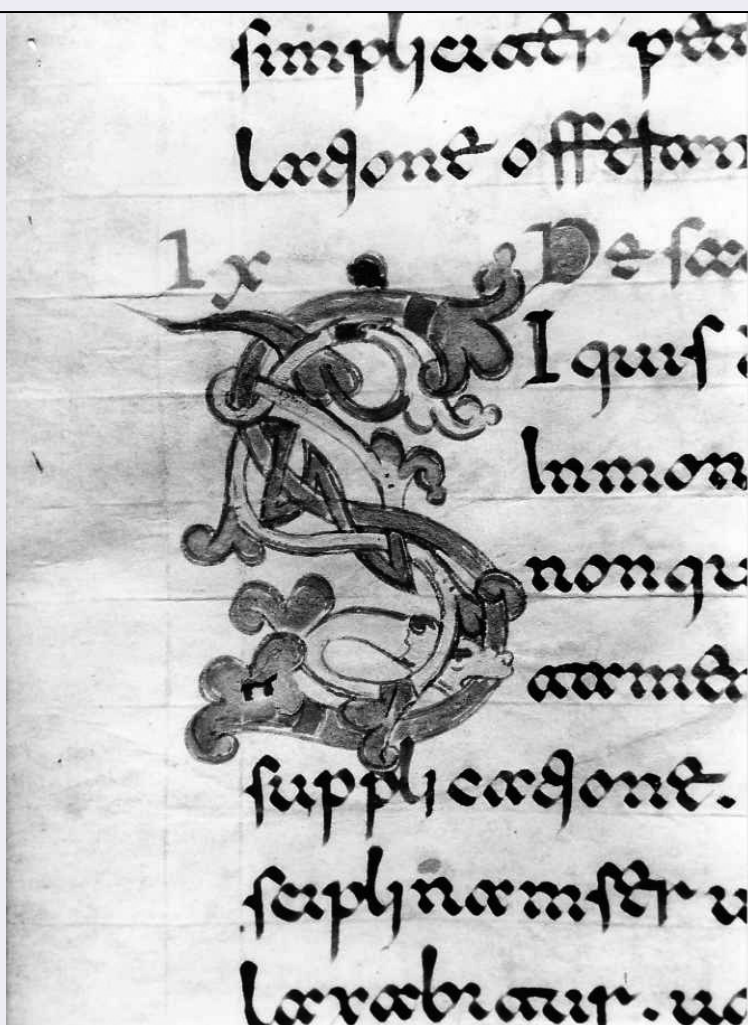 simpliciter pet
latione offeran
lx De sac
SI quis
In mon
non qu
atamen
supplicatione.
sciplinam ser u
laxabitur. u